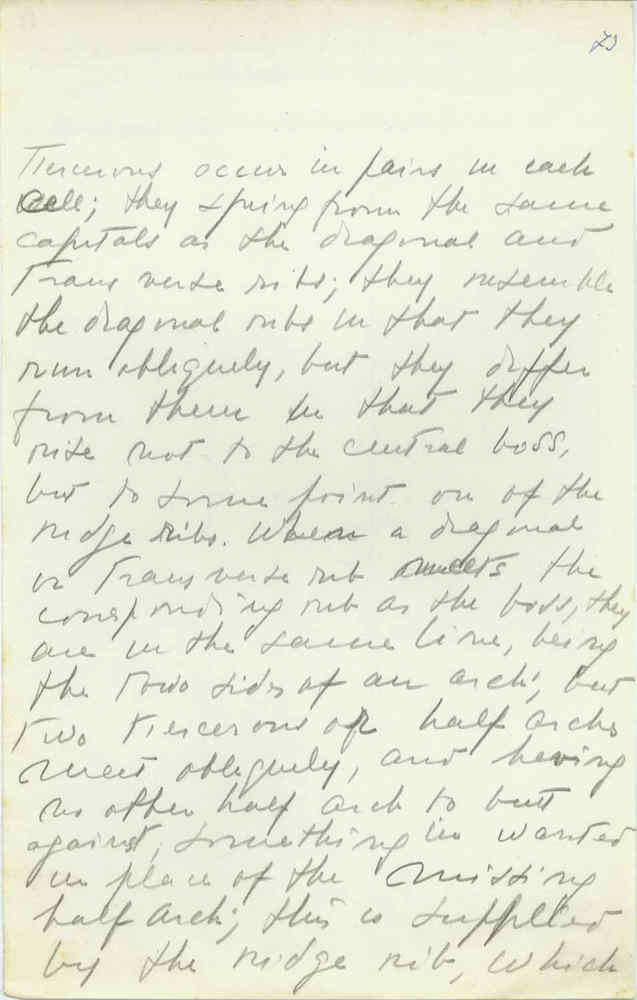 73
Tiercerons occur in pairs in each
Cell; they spring from the same
capitals as the diagonal and
Transverse ribs; they resemble
the diagonal ribs in that they
run obliquely, but they differ
from them in that they
rise not to the central boss,
but to some point on of the
ridge ribs. When a diagonal
or Transverse rib meets the
corresponding rib as the boss, they
are in the same line, being
the two sides of an arch; but
Two tiercerons or half arches
meet obliquely, and having
no other half arch to butt
against, something is wanted
in place of the missing
half arch; this is supplied
by the ridge rib, which